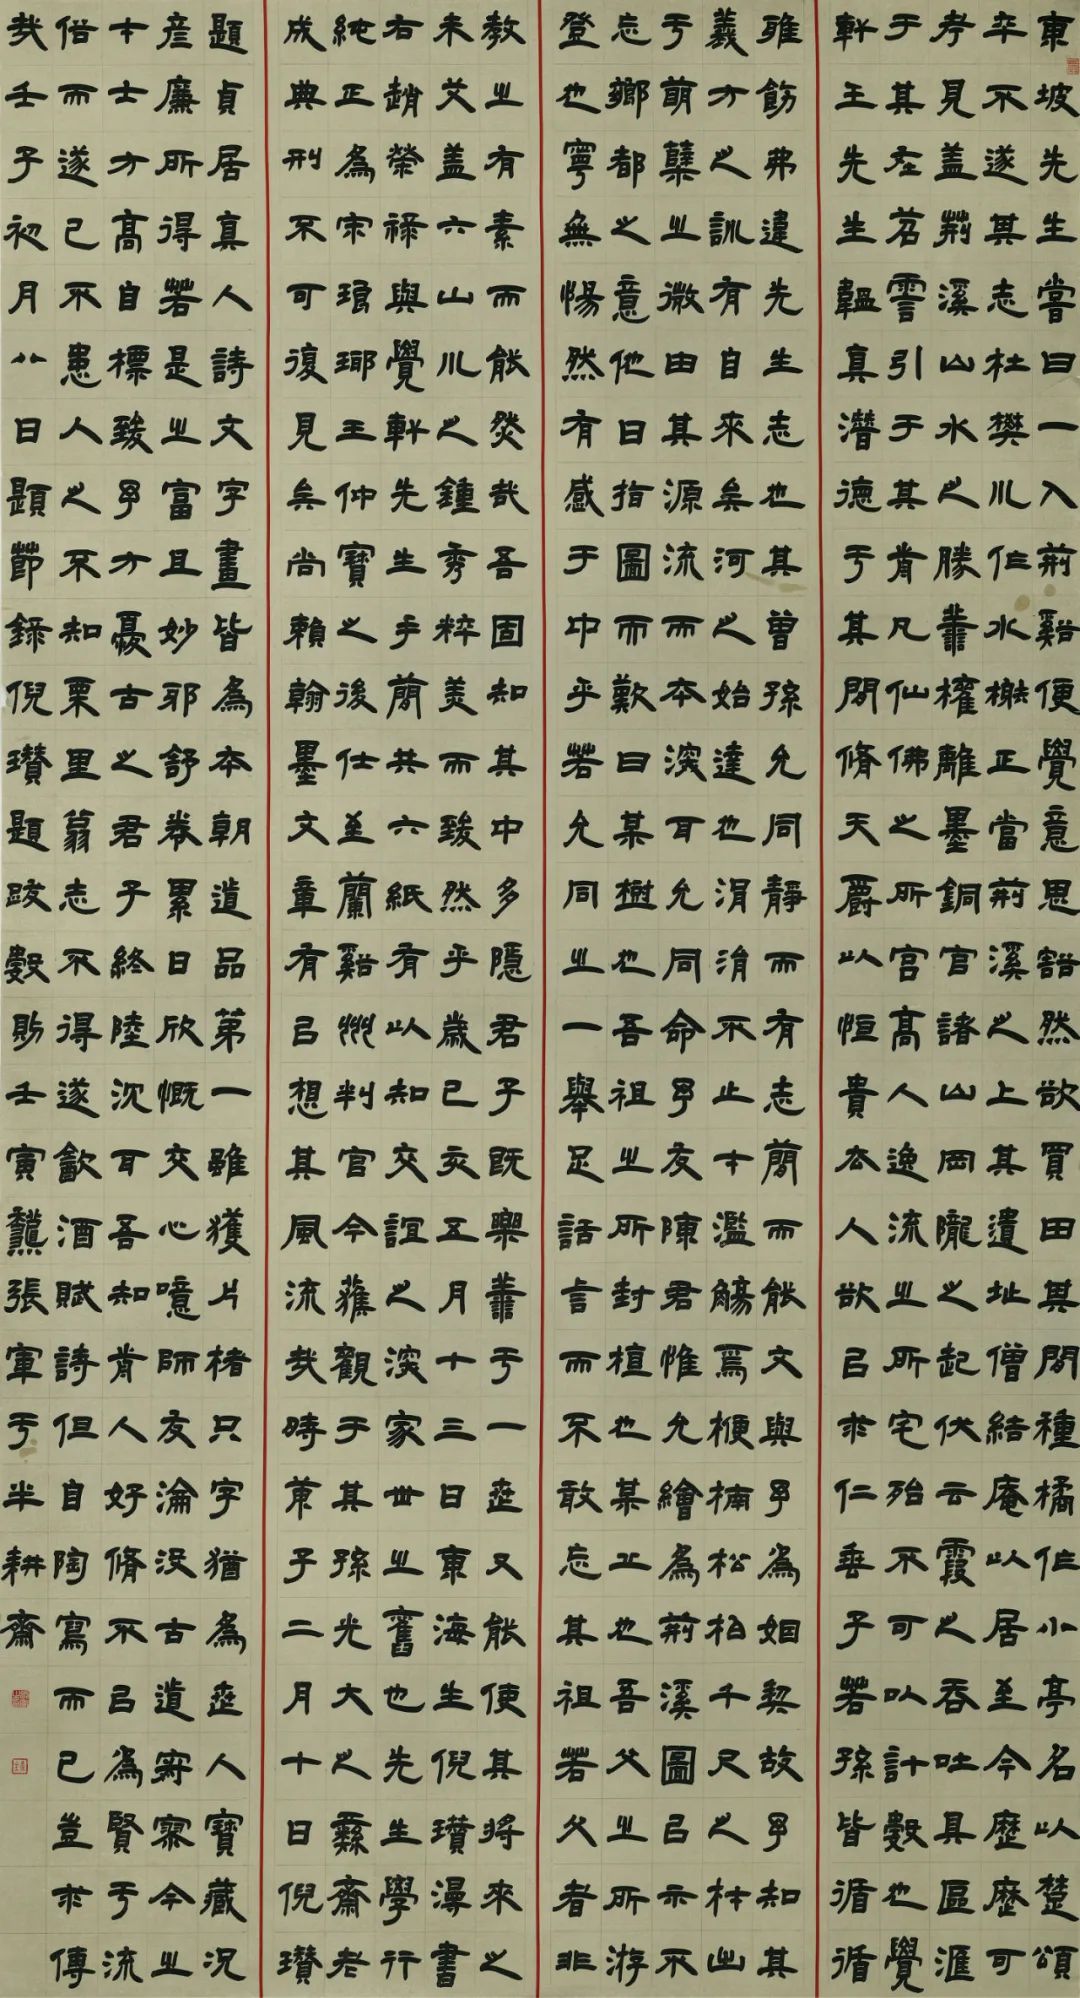 東坡先生嘗曰一入荊谿便覺意思豁然欲買田其間種橘作小亭名以楚頌
卒不遂其志杜樊川作水榭正當荊溪之上其遺址僧結庵以居至今歷歷可
考見蓋荊溪山水之勝叢榷離墨銅官諸山岡隴之起伏云霞之吞吐具區滙
于其左苕霅引于其歬凡仙佛之所宮高人逸流之所宅殆不可以計數也覺
軒王先生韞真潛德于其間脩天爵以恒貴公人欲㠯求仁垂子若孫皆循循
雅飭弗違先生志也其曾孫允同靜而有志簡而能文與予為姻契故予知其
義方之訓有自來矣河之始達也涓涓不止才濫觴焉楩楠松柏千尺之材出
于萌蘗之微由其源流而本深耳允同命予友陳君惟允繪為荊溪圖㠯示不
忘鄉都之意他日指圖而歎曰某樹也吾祖之所封植也某丘也吾父之所游
登也寧無惕然有感于中乎若允同之一舉足話言而不敢忘其祖若父者非
教之有素而能然哉吾固知其中多隱君子既樂叢于一世又能使其將來之
未艾蓋六山川之鍾秀粹美而致然乎歲己亥五月十三日東海生倪瓚漫書
右趙榮祿與覺軒先生手簡共六紙有以知交誼之深家世之舊也先生學行
純正為宋琅瑯王仲寶之後仕至蘭谿州判官今獲觀于其孫光大之彝齋老
成典刑不可復見矣尚賴翰墨文章有㠯想其風流哉時甲子二月十日倪瓚
題貞居真人詩文字畫皆為本朝道品第一雖獲片楮只字猶為世人寶藏況
彥廉所得若是之富且妙邪舒卷累日欣慨交心噫師友淪沒古道寂寥今之
才士方高自標致予方憂古之君子終陸沉耳吾知歬人好脩不㠯為賢于流
俗而遂已不患人之不知栗里翁志不得遂飲酒賦詩但自陶寫而已豈求傳
哉壬子初月八日題節錄倪瓚題跋數則壬寅龝張軍于半耕齋